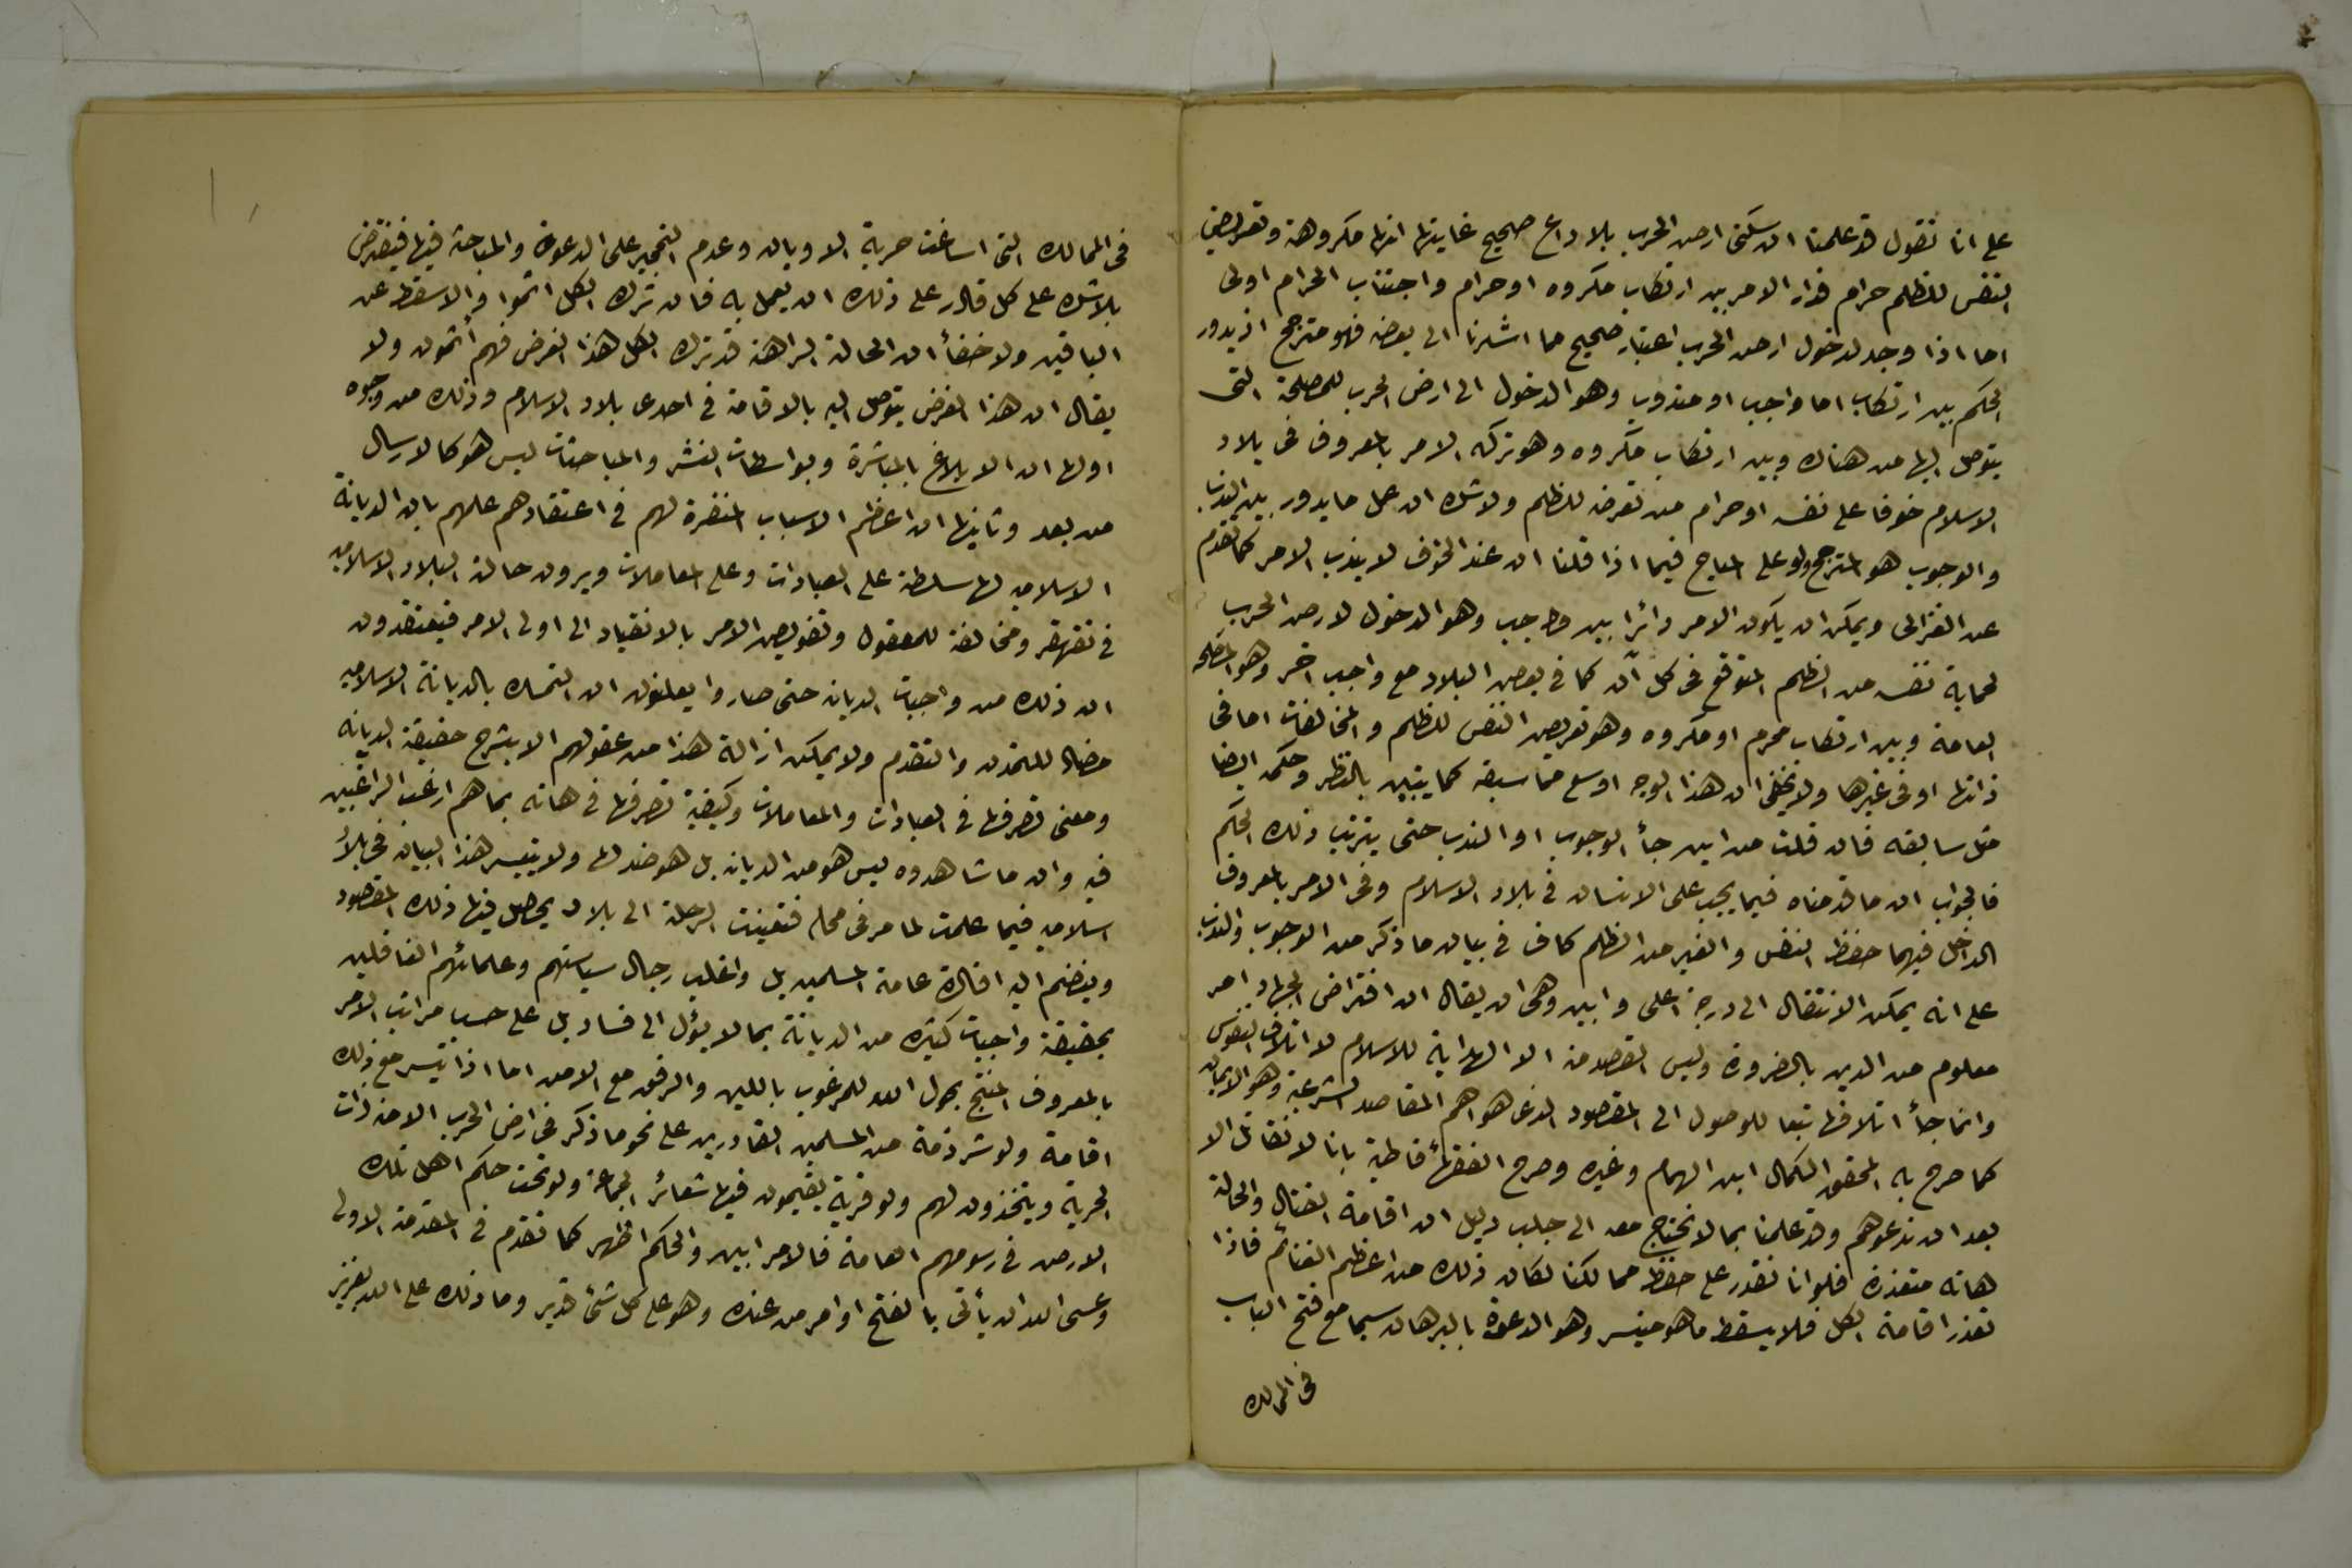 على انا نقول قد علمنا ان سكنى ارض الحرب بلا داع صحيح غايتها انها مكروهة وتعريض
النفس للظلم حرام فدار الامر بين ارتكاب مكروه او حرام واجتناب الحرام اولى
اما اذا وجد لدخول ارض الحرب اعتبار صحيح مما اشرنا الى بعضه فهو مترجح اذ يدور
الحكم بين ارتكاب اما واجب او مندوب وهو الدخول الى ارض الحرب للمصلحة التى
يتوصل اليها من هناك وبين ارتكاب مكروه وهو تركه الامر بالمعروف فى بلاد
الاسلام خوفا على نفسه او حرام من تعرضه للظلم ولا شك ان عمل ما يدور بين الندب
والوجوب هو المترجح ولو على المباح فيما اذا قلنا ان عند الخوف لا يندب الامر كما تقدم
عن الغزالى ويمكن ان يكون الامر دائرا بين واجب وهو الدخول لارض الحرب
لحماية نفسه من الظلم المتوقع فى كل آن كما فى بعض البلاد مع واجب اخر وهو المصلحة
العامة وبين ارتكاب محرم او مكروه وهو تعريض النفس للظلم والمخالفات اما فى
ذاتها او فى غيرها ولا يخفى ان هذا الوجه اوسع مما سبقه كما يتبين بالنظر وحكمه ايضا
مثل سابقه فان قلت من اين جأ الوجوب او الندب حتى يترتب ذلك الحكم
فالجواب ان ما قدمناه فيما يجب على الانسان فى بلاد الاسلام وفى الامر بالمعروف
الداخل فيهما حفظ النفس والغير من الظلم كاف فى بيان ما ذكر من الوجوب والندب
على انه يمكن الانتقال الى درجة اعلى وابين وهى ان يقال ان افتراض الجهاد امر
معلوم من الدين بالضرورة وليس القصد منه الا الهداية للاسلام لا اتلاف النفوس
وانما جأ اتلافها تبعا للوصول الى المقصود الذى هو اهم المقاصد الشرعية وهو الايمان
كما صرح به المحقق الكمال ابن الهمام وغيره وصرح الفقهأ قاطبة بانا لا نقاتل الا
بعد ان ندعوهم وقد علمنا بما لا نحتاج معه الى جلب دليل ان اقامة القتال والحالة
هاته متعذرة فلو انا نقدر على حفظ ممالكنا لكان ذلك من اعظم الغنائم فاذا
تعذر اقامة الكل فلا يسقط ما هو متيسر وهو الدعوة بالبرهان سيما مع فتح الباب
فى الممالك
فى الممالك التى اساغت حرية الاديان وعدم التحجير على الدعوة والمباحثة فيها فيفترض
بلا شك على كل قادر على ذلك ان يعمل به فان ترك الكل اثموا والا سقط عن
الباقين ولا خفأ ان الحالة الراهنة قد ترك الكل هذا الفرض فهم أثمون ولا
يقال ان هذا الفرض يتوصل اليه بالاقامة فى احدى بلاد الاسلام وذلك من وجوه
اولها ان الابلاغ بالمباشرة وبواسطات النشر والمباحثات ليس هو كالارسال
من بعد وثانيها ان اعظم الاسباب المنفرة لهم فى اعتقادهم علمهم بان الديانة
الاسلاميه لها سلطة على العبادات وعلى المعاملات ويرون حالة البلاد الاسلاميه
فى تقهقر ومخالفة للمعقول وتفويض الامر بالانقياد الى اولى الامر فيعتقدون
ان ذلك من واجبات الديانه حتى صاروا يعلنون ان التمسك بالديانة الاسلاميه
مضاد للتمدن والتقدم ولا يمكن ازالة هذا من عقولهم الا بشرح حقيقة الديانه
ومعنى تصرفها فى العبادات والمعاملات وكيفية تصرفها فى هاته بما هم ارغب الراغبين
فيه وان ما شاهدوه ليس هو من الديانه بل هو ضد لها ولا يتيسر هذا البيان فى بلاد
اسلاميه فيما علمت لما مر فى محله فتعينت الرحلة الى بلاد يحصل فيها ذلك المقصود
وينضم اليه افادة عامة المسلمين بل واغلب رجال سياستهم وعلمائهم الغافلين
بحقيقة واجبات كثيرة من الديانة بما لا يؤل الى فساد بل على حسب مراتب الامر
بالمعروف المنتج بحول الله للمرغوب باللين والرفق مع الامن اما اذا تيسر مع ذلك
اقامة ولو شرذمة من المسلمين القادرين على نحو ما ذكر فى ارض الحرب الامنة ذات
الحرية ويتخذون لهم ولو قرية يقيمون فيها شعائر الجماعة ولو تحت حكم اهل تلك
الارض فى رسومهم العامة فالامر ابين والحكم اظهر كما تقدم فى المقدمة الاولى
وعسى الله ان يأتى بالفتح او امر من عنده وهو على كل شئ قدير وما ذلك على الله بعزيز